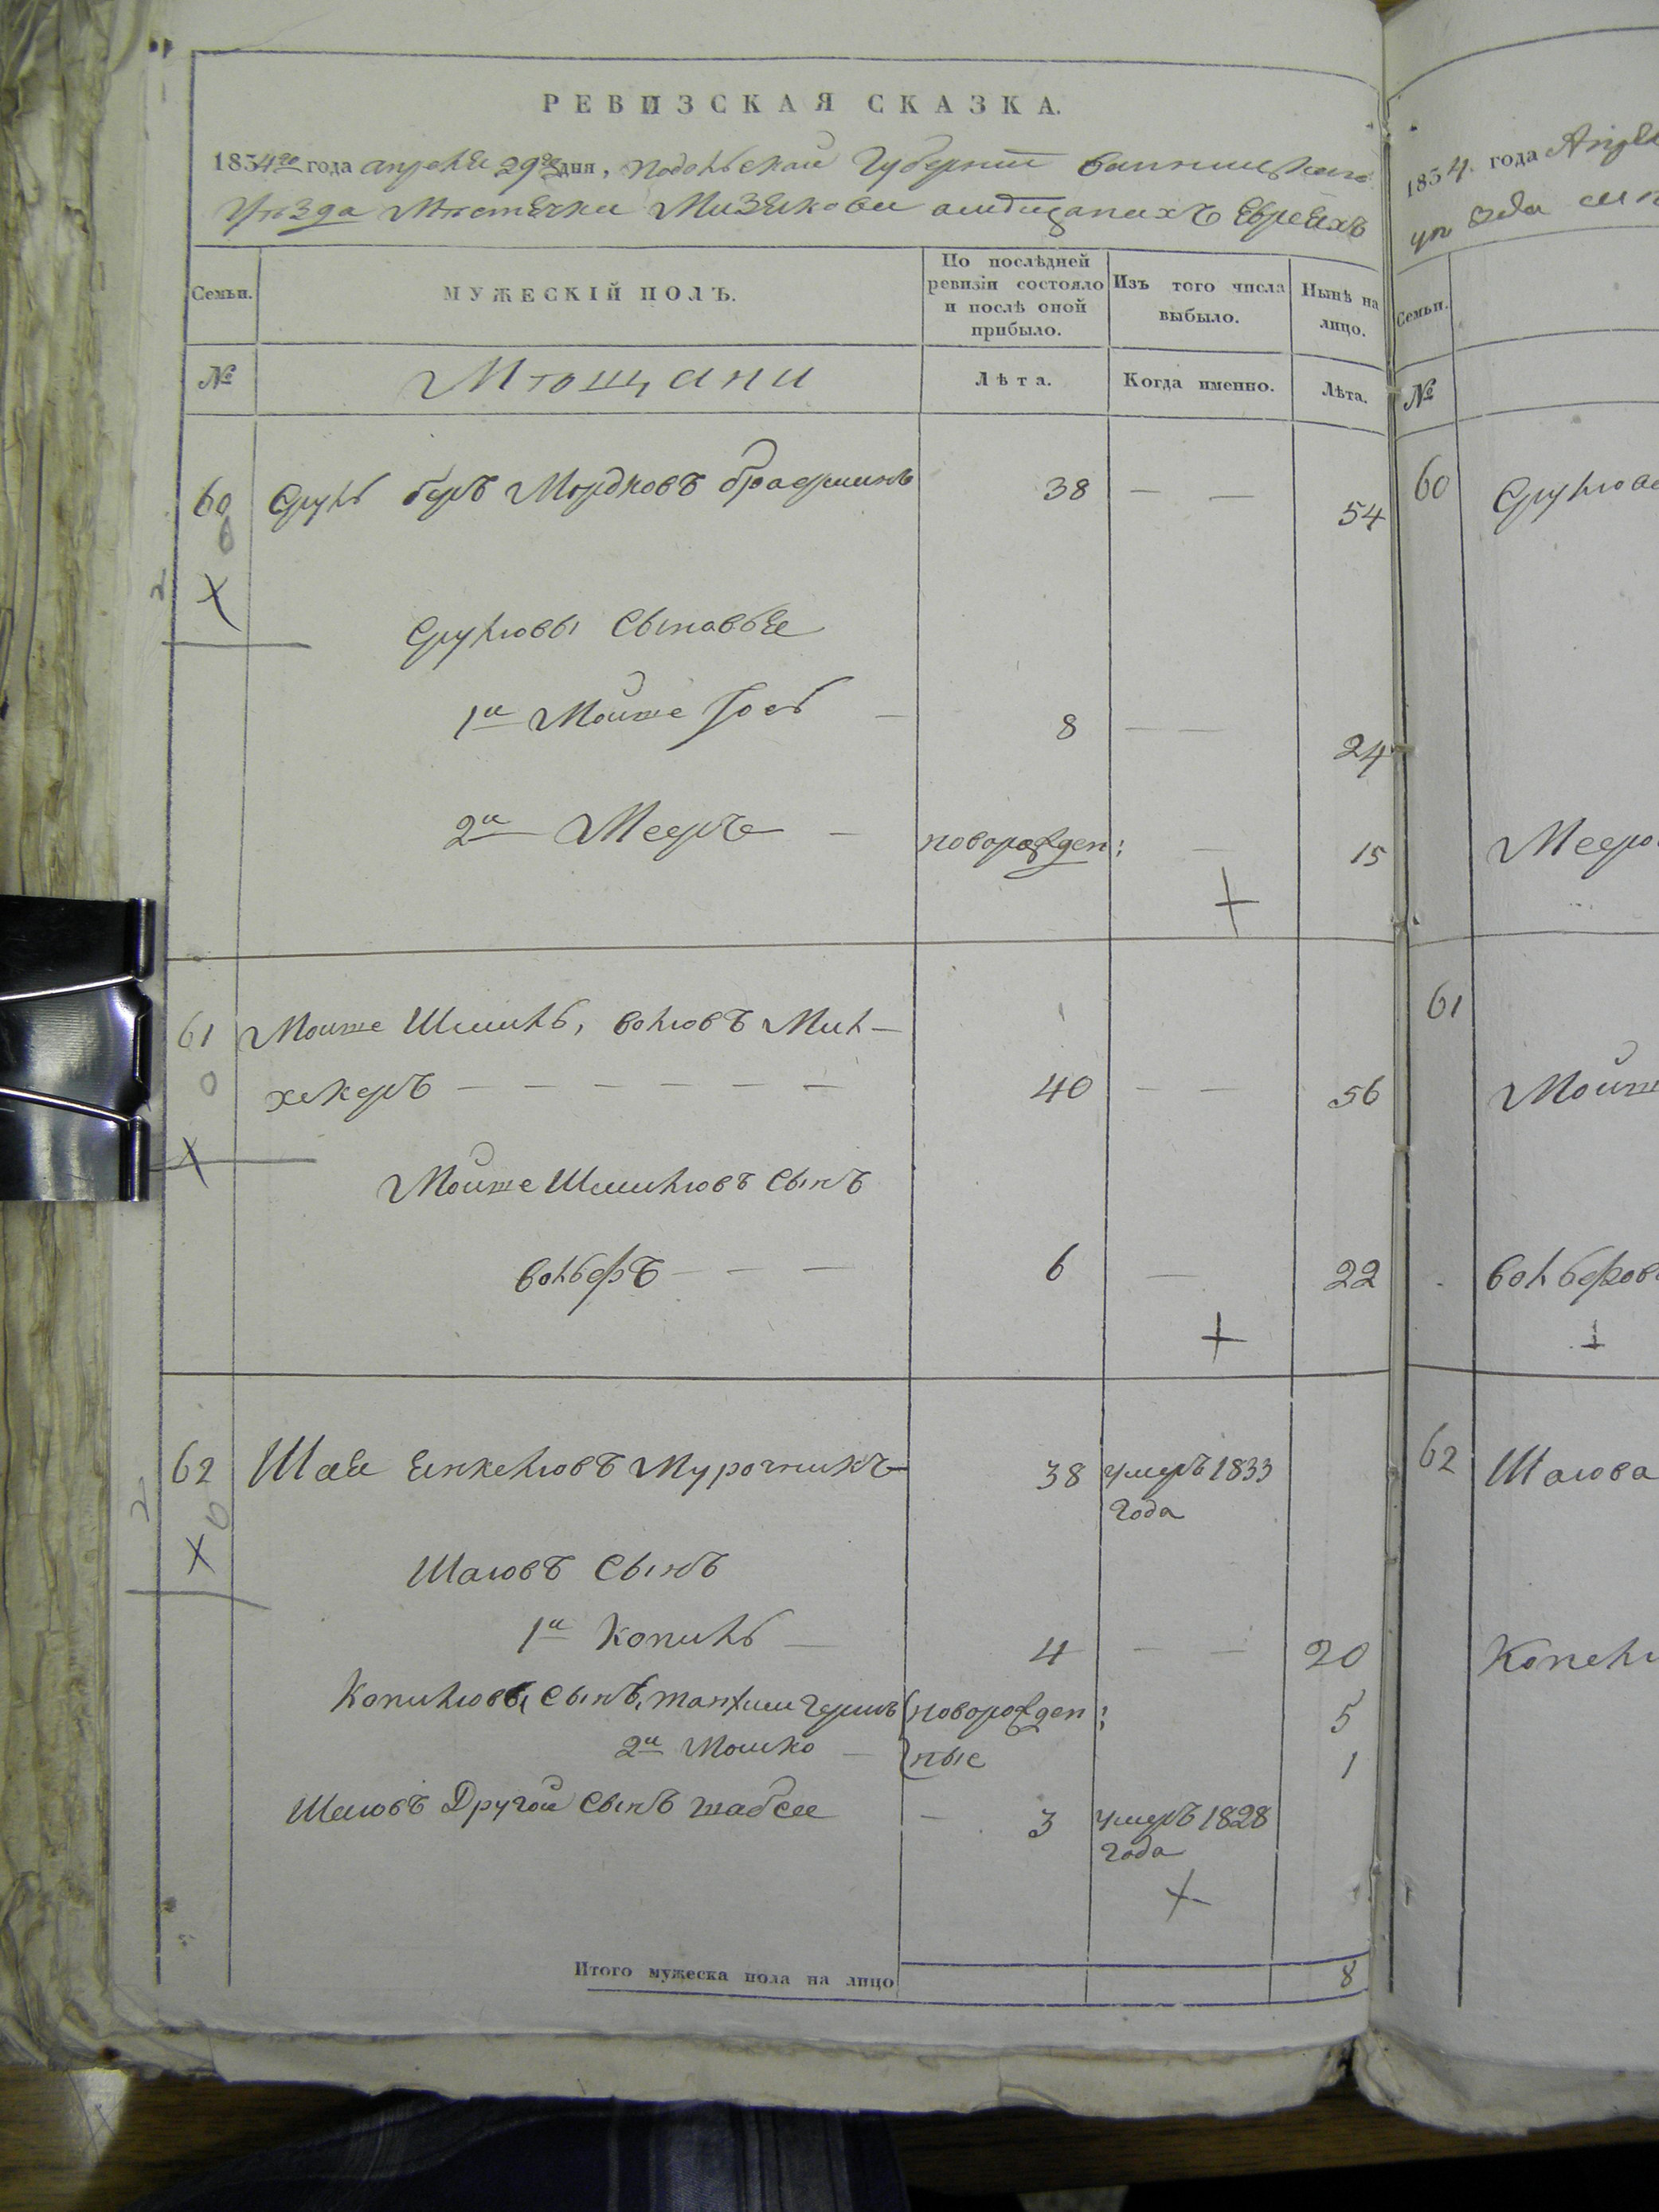 РЕВИЗСКАЯ СКАЗКА.
1834го года апреля 29го дня, Подольской Губернии Винницкаго
Уезда Местечки Мизякови о мещанахъ Евреяхъ
Семьи.
МУЖЕСКІЙ ПОЛЪ.
По послѣдней ревизіи состояло и послѣ оной прибыло.
Изъ того числа выбыло.
Нынѣ на лицо.
№
Мещани
Лѣта.
Когда именно.
Лѣта.
60 Сруль беръ Мордковъ 38 — — 54
Срулювы Сыновья
1й Мойше Іось — 8 — — 24
2й Мееръ — новорожден: — 15
61 Мойше Шмиль, вольовъ Мил-
хекеръ — — — — — — 40 — — 56
Мойше Шмилювъ Сынъ
вольфъ — — — 6 — 22
62 Шая Янкелювъ Мурочникъ 38 умеръ 1833
года
Шаювъ Сынъ
1й Копиль — 4 — — 20
Копилювы Сынъ, новорожден: 5
2й Мошко — ные 1
Шаювъ Другой Сынъ Шабсе — 3 умеръ 1828
года
Итого мужеска пола на лицо 8
1834. года
уезда
Семьи.
№
60
61
Мойше
62 Шаюва